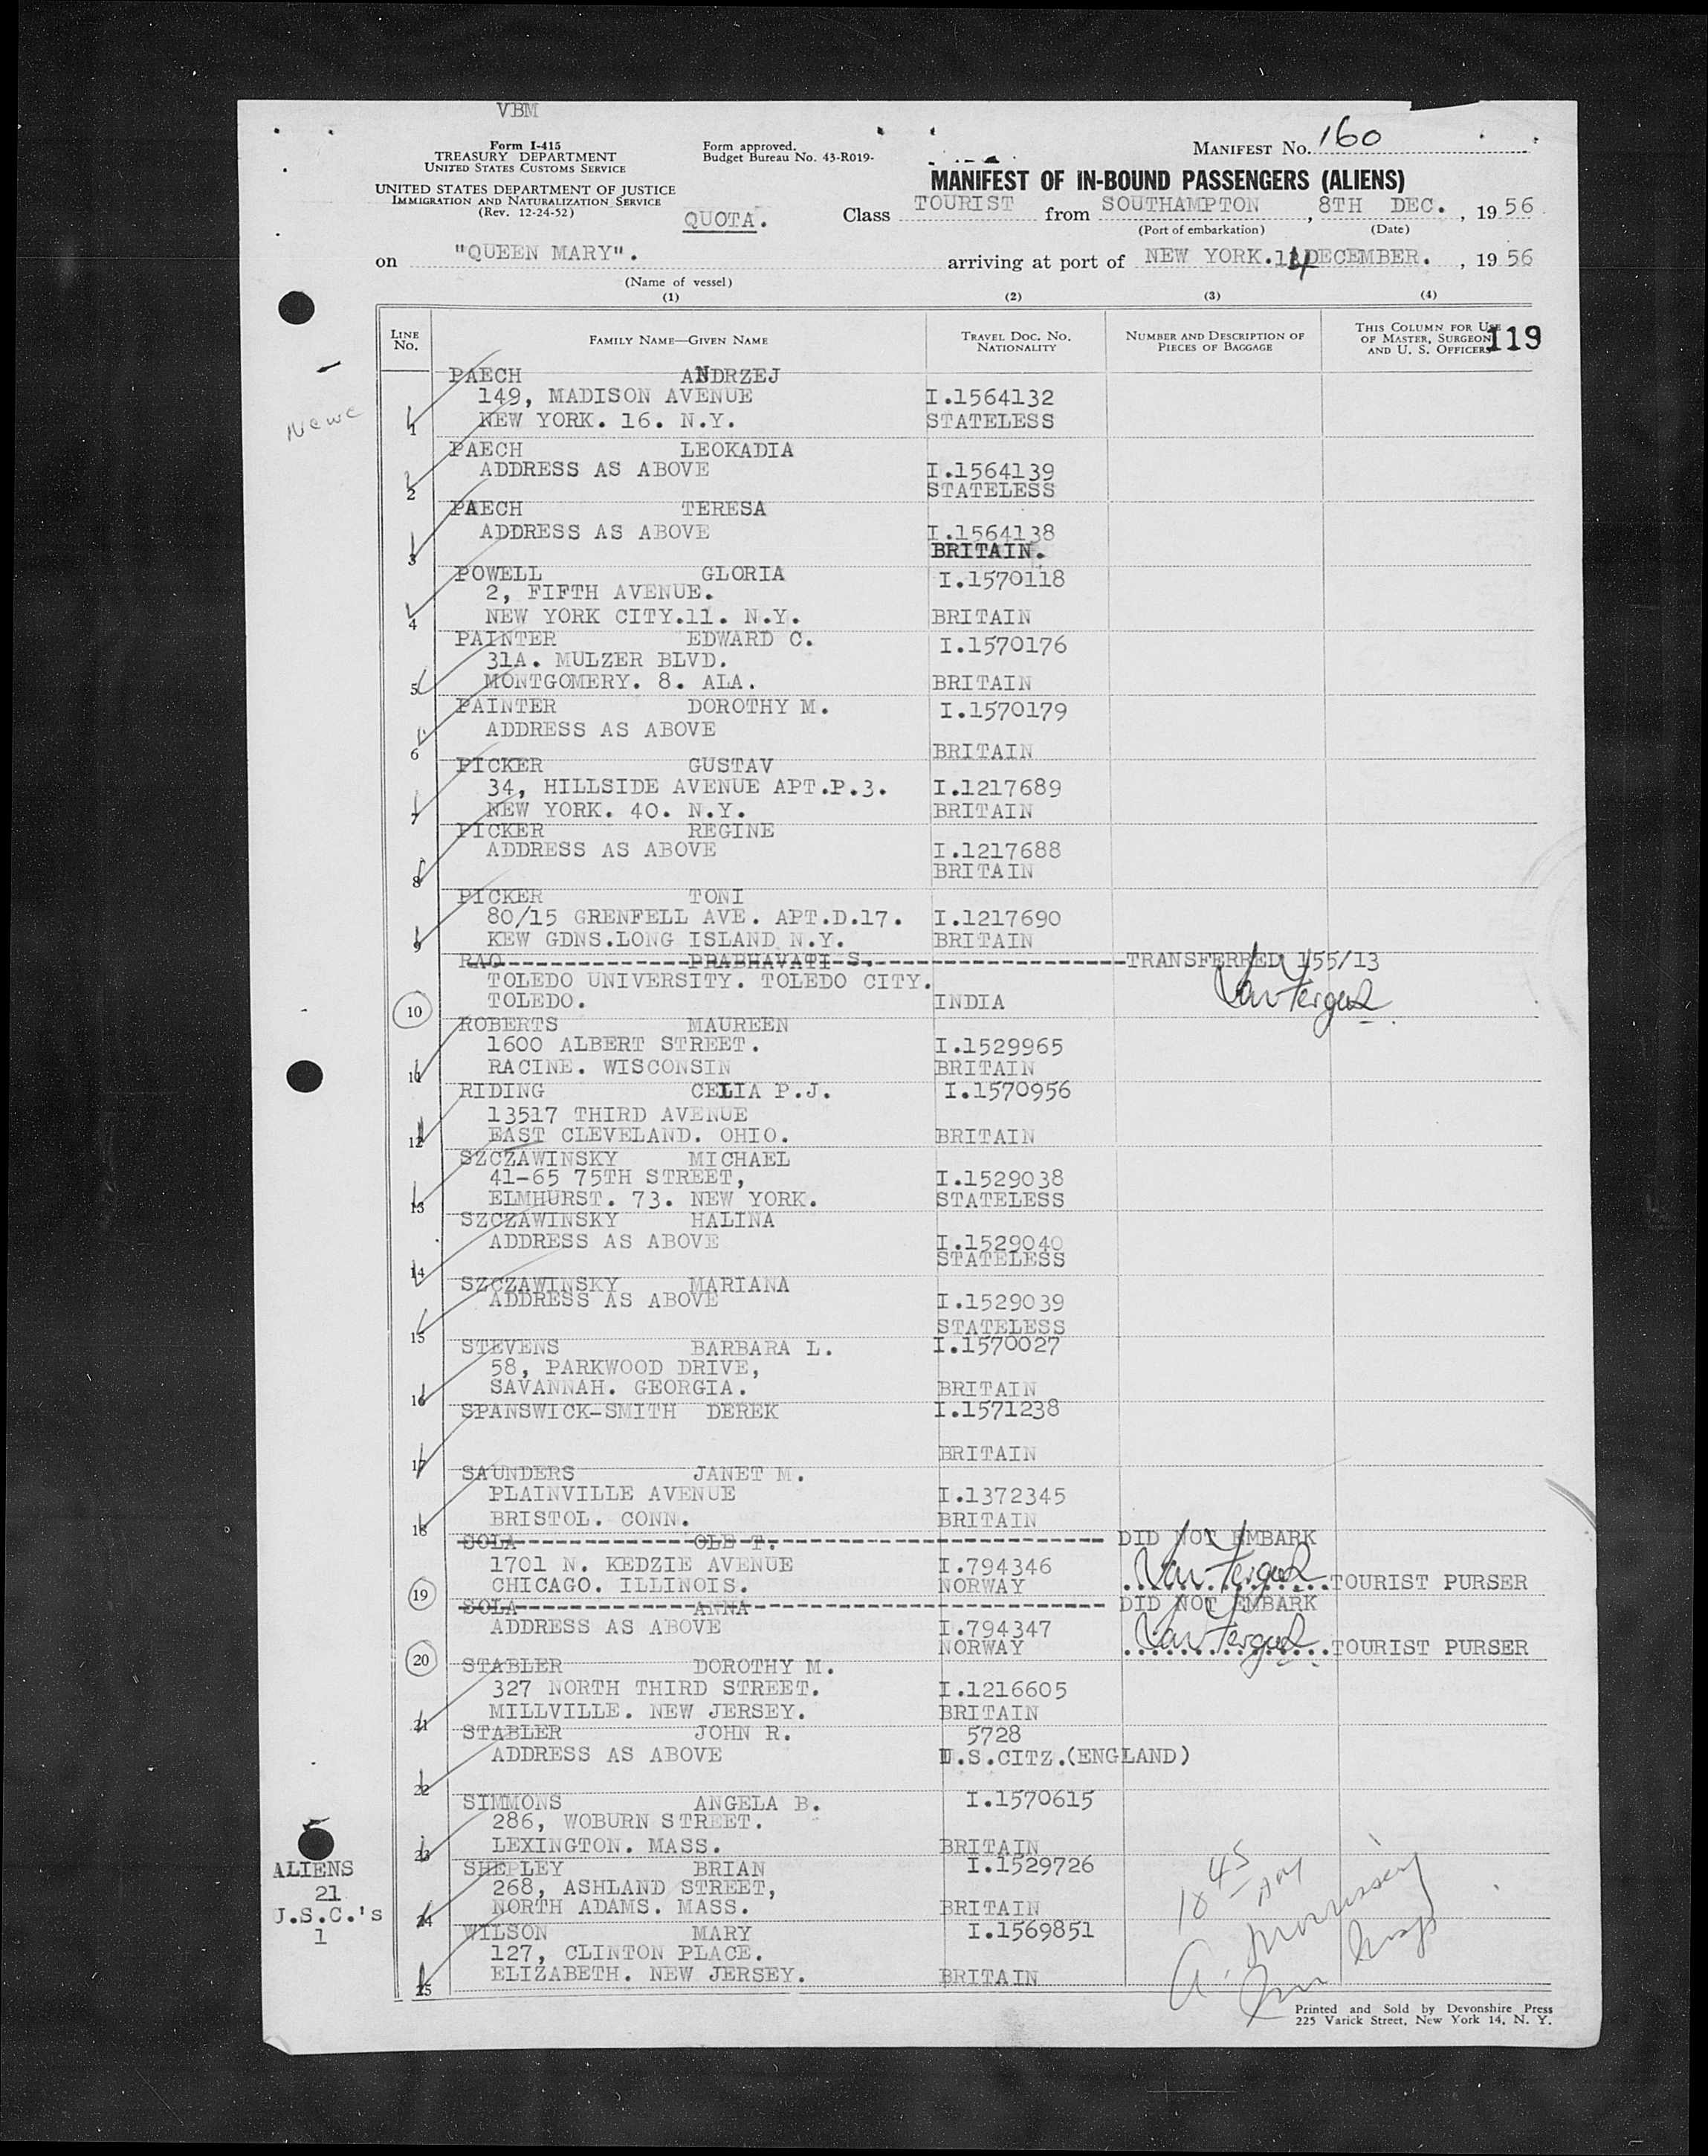 VBM
Form I-415
TREASURY DEPARTMENT
UNITED STATES CUSTOMS SERVICE
UNITED STATES DEPARTMENT OF JUSTICE
IMMIGRATION AND NATURALIZATION SERVICE
(Rev. 12-24-52)
Form approved.
Budget Bureau No. 43-R019-
MANIFEST No. 160
MANIFEST OF IN-BOUND PASSENGERS (ALIENS)
QUOTA.
Class TOURIST from SOUTHAMPTON, 8TH DEC., 1956
(Port of embarkation) (Date)
on "QUEEN MARY". arriving at port of NEW YORK. 14 DECEMBER., 1956
(Name of vessel)
(1) (2) (3) (4)
LINE No. FAMILY NAME—GIVEN NAME TRAVEL DOC. NO. NATIONALITY NUMBER AND DESCRIPTION OF PIECES OF BAGGAGE THIS COLUMN FOR USE OF MASTER, SURGEON AND U. S. OFFICERS 119
PAECH ANDRZEJ
149, MADISON AVENUE I.1564132
1 NEW YORK. 16. N.Y. STATELESS
PAECH LEOKADIA
ADDRESS AS ABOVE I.1564139
2 STATELESS
PAECH TERESA
ADDRESS AS ABOVE I.1564138
3 BRITAIN.
POWELL GLORIA I.1570118
2, FIFTH AVENUE.
4 NEW YORK CITY.11. N.Y. BRITAIN
PAINTER EDWARD C. I.1570176
31A. MULZER BLVD.
5 MONTGOMERY. 8. ALA. BRITAIN
PAINTER DOROTHY M. I.1570179
ADDRESS AS ABOVE
6 BRITAIN
PICKER GUSTAV
34, HILLSIDE AVENUE APT.P.3. I.1217689
7 NEW YORK. 40. N.Y. BRITAIN
PICKER REGINE
ADDRESS AS ABOVE I.1217688
8 BRITAIN
PICKER TONI
80/15 GRENFELL AVE. APT.D.17. I.1217690
9 KEW GDNS.LONG ISLAND N.Y. BRITAIN
RAO PRABHAVATI S. TRANSFERRED 155/13
TOLEDO UNIVERSITY. TOLEDO CITY.
10 TOLEDO. INDIA
ROBERTS MAUREEN
1600 ALBERT STREET. I.1529965
11 RACINE. WISCONSIN BRITAIN
RIDING CELIA P.J. I.1570956
13517 THIRD AVENUE
12 EAST CLEVELAND. OHIO. BRITAIN
SZCZAWINSKY MICHAEL
41-65 75TH STREET, I.1529038
13 ELMHURST. 73. NEW YORK. STATELESS
SZCZAWINSKY HALINA
ADDRESS AS ABOVE I.1529040
14 STATELESS
SZCZAWINSKY MARIANA
ADDRESS AS ABOVE I.1529039
15 STATELESS
STEVENS BARBARA L. I.1570027
58, PARKWOOD DRIVE,
16 SAVANNAH. GEORGIA. BRITAIN
SPANSWICK-SMITH DEREK I.1571238
17 BRITAIN
SAUNDERS JANET M.
PLAINVILLE AVENUE I.1372345
18 BRISTOL. CONN. BRITAIN
SOLA OLE T. DID NOT EMBARK
1701 N. KEDZIE AVENUE I.794346
19 CHICAGO. ILLINOIS. NORWAY TOURIST PURSER
SOLA ANNA DID NOT EMBARK
ADDRESS AS ABOVE I.794347
20 NORWAY TOURIST PURSER
STABLER DOROTHY M.
327 NORTH THIRD STREET. I.1216605
21 MILLVILLE. NEW JERSEY. BRITAIN
STABLER JOHN R. 5728
ADDRESS AS ABOVE U.S.CITZ.(ENGLAND)
22
SIMMONS ANGELA B. I.1570615
286, WOBURN STREET.
23 LEXINGTON. MASS. BRITAIN
SHEPLEY BRIAN I.1529726
268, ASHLAND STREET,
24 NORTH ADAMS. MASS. BRITAIN
WILSON MARY I.1569851
127, CLINTON PLACE.
25 ELIZABETH. NEW JERSEY. BRITAIN
ALIENS
21
U.S.C.'s
1
Printed and Sold by Devonshire Press
225 Varick Street, New York 14, N. Y.